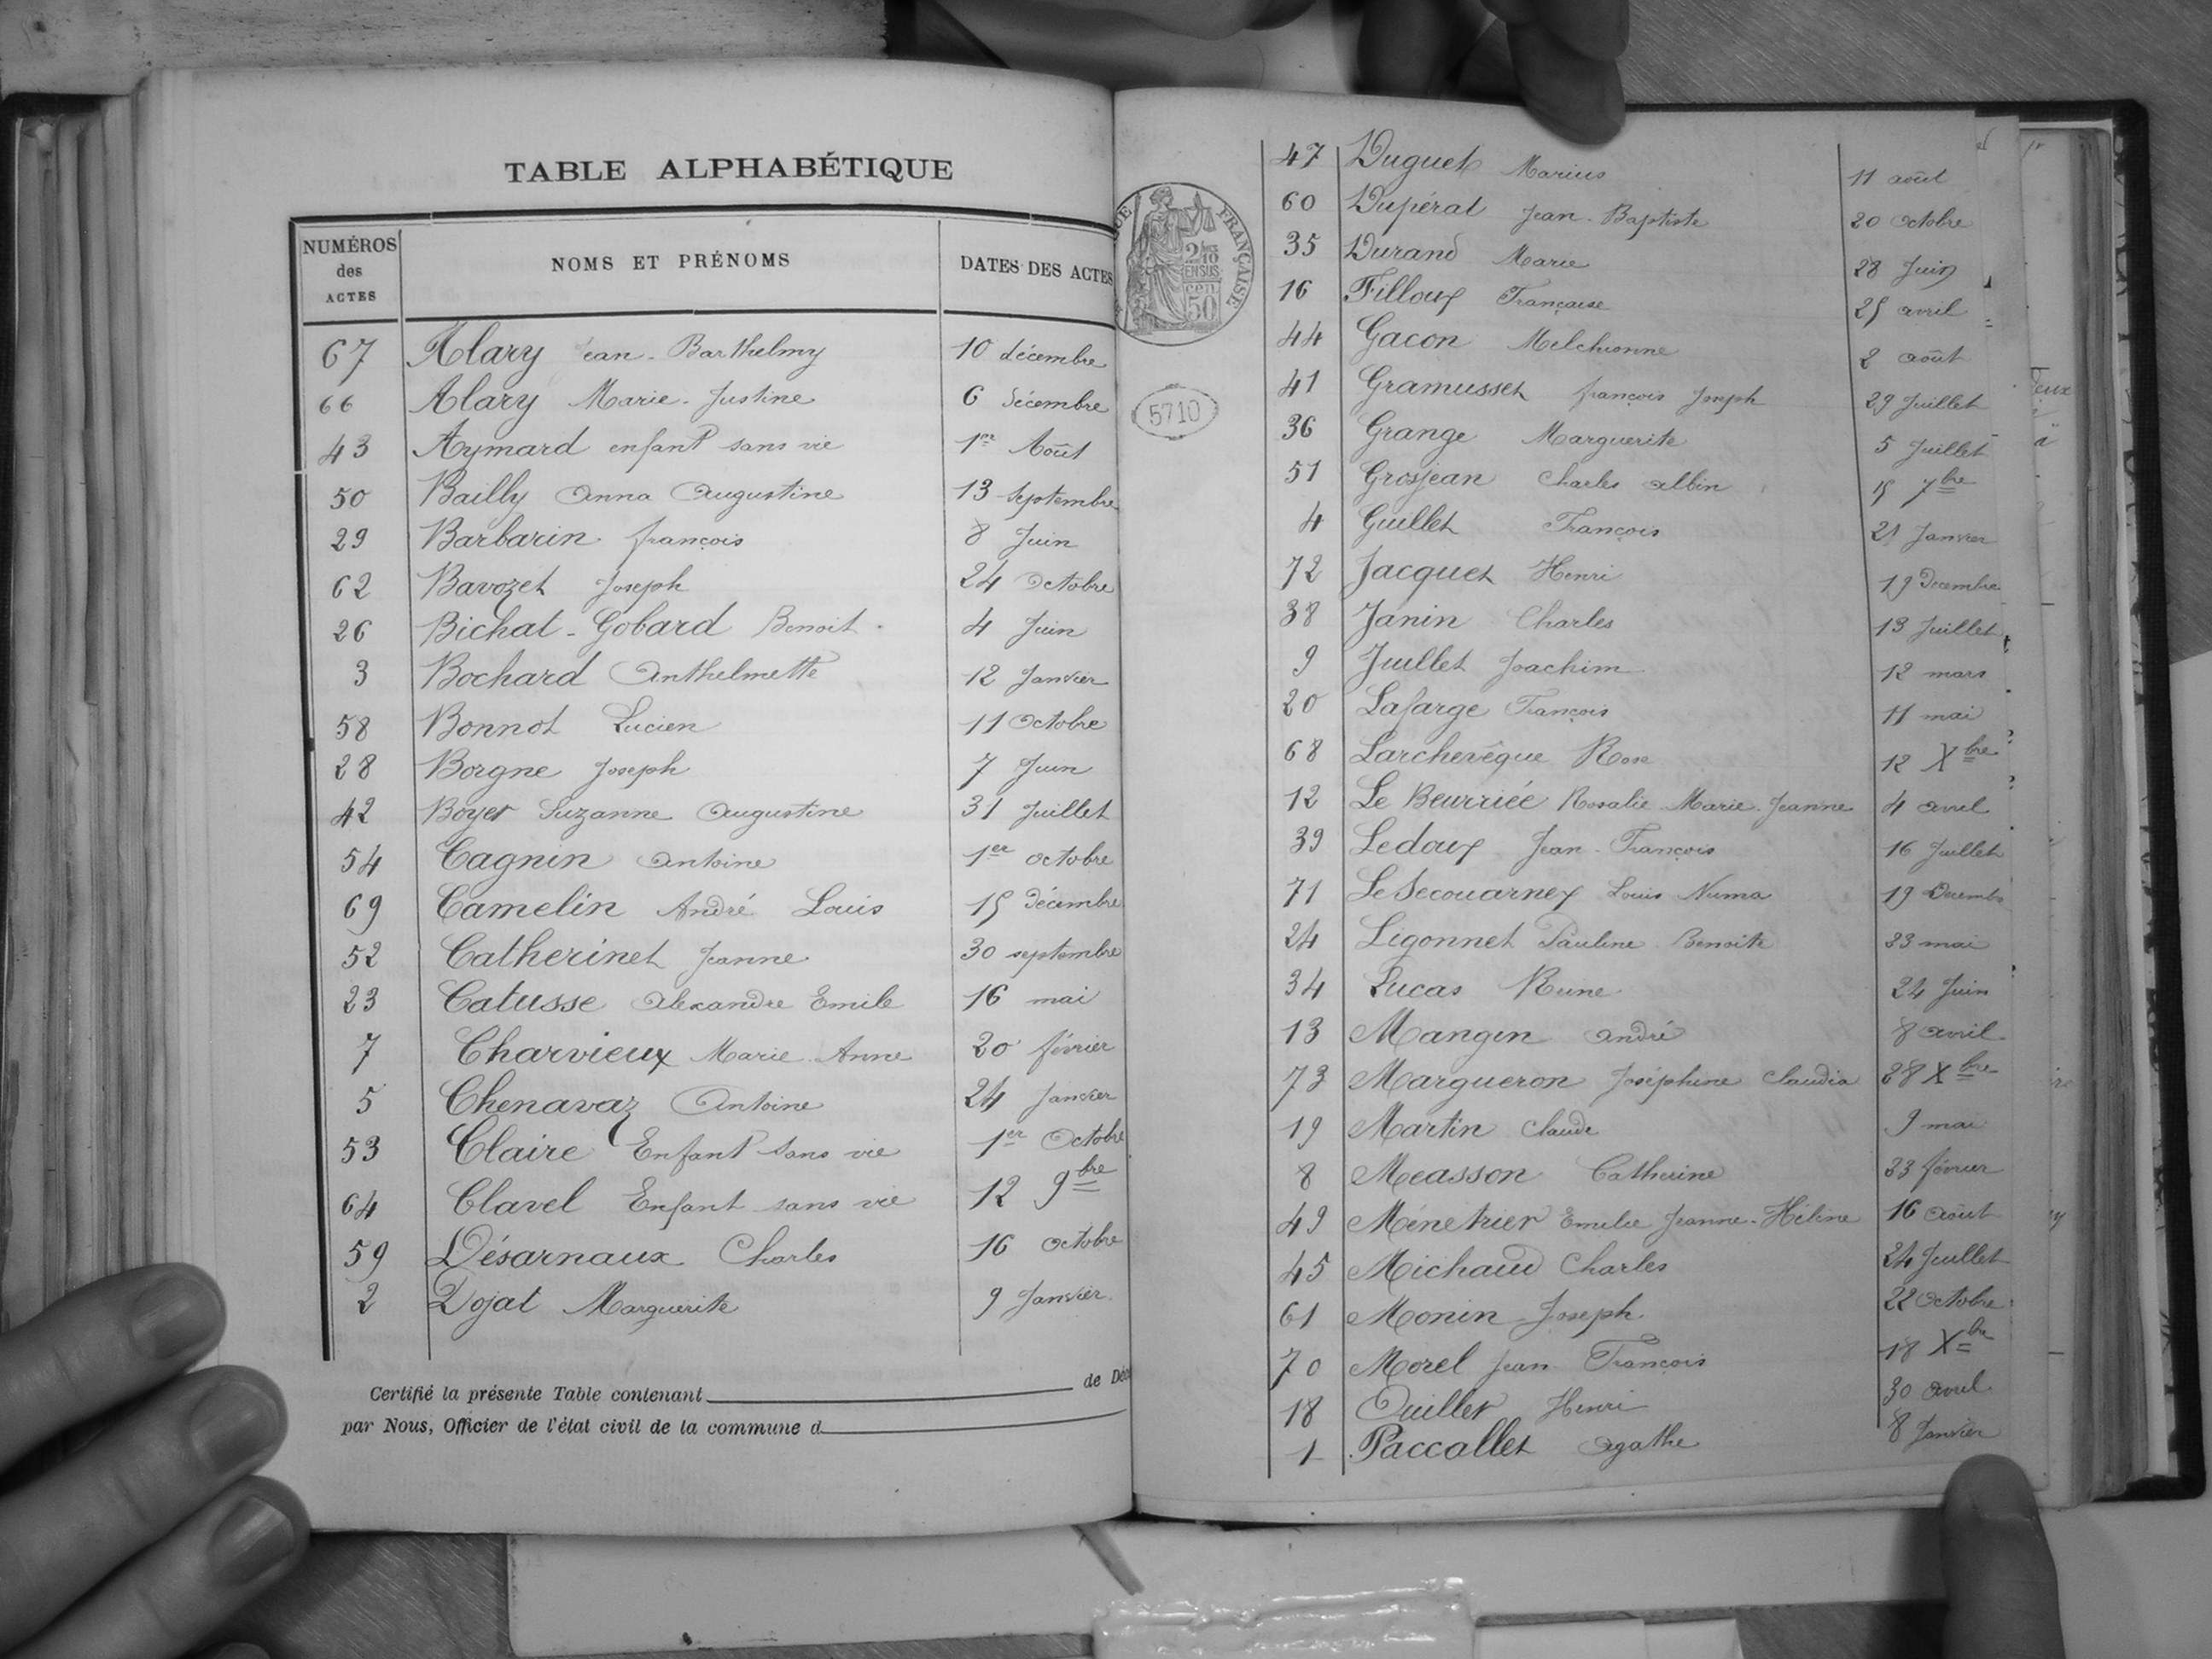 TABLE ALPHABÉTIQUE
NUMÉROS des ACTES NOMS ET PRÉNOMS DATES DES ACTES
67 Alary Jean-Barthelmy 10 décembre
66 Alary Marie-Justine 6 décembre
43 Aymard enfant sans vie 1er Août
50 Bailly Anna Augustine 13 Septembre
29 Barbarin françois 8 Juin
62 Bavozet Joseph 24 Octobre
26 Bichat-Gobard Benoit 4 Juin
3 Bochard Anthelmette 12 Janvier
58 Bonnot Lucien 11 Octobre
28 Borgne Joseph 7 Juin
42 Boyer Suzanne Augustine 31 Juillet
54 Cagnin Antoine 1er octobre
69 Camelin André Louis 15 décembre
52 Catherinet Jeanne 30 septembre
23 Catusse Alexandre Emile 16 mai
7 Charvieux Marie-Anne 20 février
5 Chenavaz Antoine 24 Janvier
53 Claire Enfant sans vie 1er Octobre
64 Clavel Enfant sans vie 12 9bre
59 Désarnaux Charles 16 octobre
2 Dojat Marguerite 9 Janvier
Certifié la présente Table contenant de Déc
par Nous, Officier de l'état civil de la commune d
FRANÇAISE
2/10
EN SUS
50
5710
47 Duguet Marius 11 août
60 Dupérat Jean-Baptiste 20 Octobre
35 Durand Marie 28 Juin
16 Filloux Françoise 25 avril
44 Gacon Melchionne 2 août
41 Gramusset françois Joseph 29 Juillet
36 Grange Marguerite 5 Juillet
51 Grosjean Charles Albin 15 7bre
4 Guillet François 21 Janvier
72 Jacquet Henri 19 Decembre
38 Janin Charles 13 Juillet
9 Juillet Joachim 12 mars
20 Lafarge François 11 mai
68 Larchevêque Rose 12 Xbre
12 Le Beurriée Rosalie-Marie-Jeanne 4 avril
39 Ledoux Jean-François 16 Juillet
71 Le Secouarnex Louis Numa 19 Decembre
24 Ligonnet Pauline Benoite 23 mai
34 Lucas Reine 24 Juin
13 Mangin André 8 avril
73 Margueron Joséphine Claudia 28 Xbre
19 Martin Claude 9 mai
8 Measson Catherine 23 février
49 Ménétrier Emilie Jeanne-Hélène 16 août
45 Michaud Charles 24 Juillet
61 Monin Joseph 22 Octobre
70 Morel Jean François 18 Xbre
18 Ouiller Henri 30 avril
1 Paccallet Agathe 8 Janvier